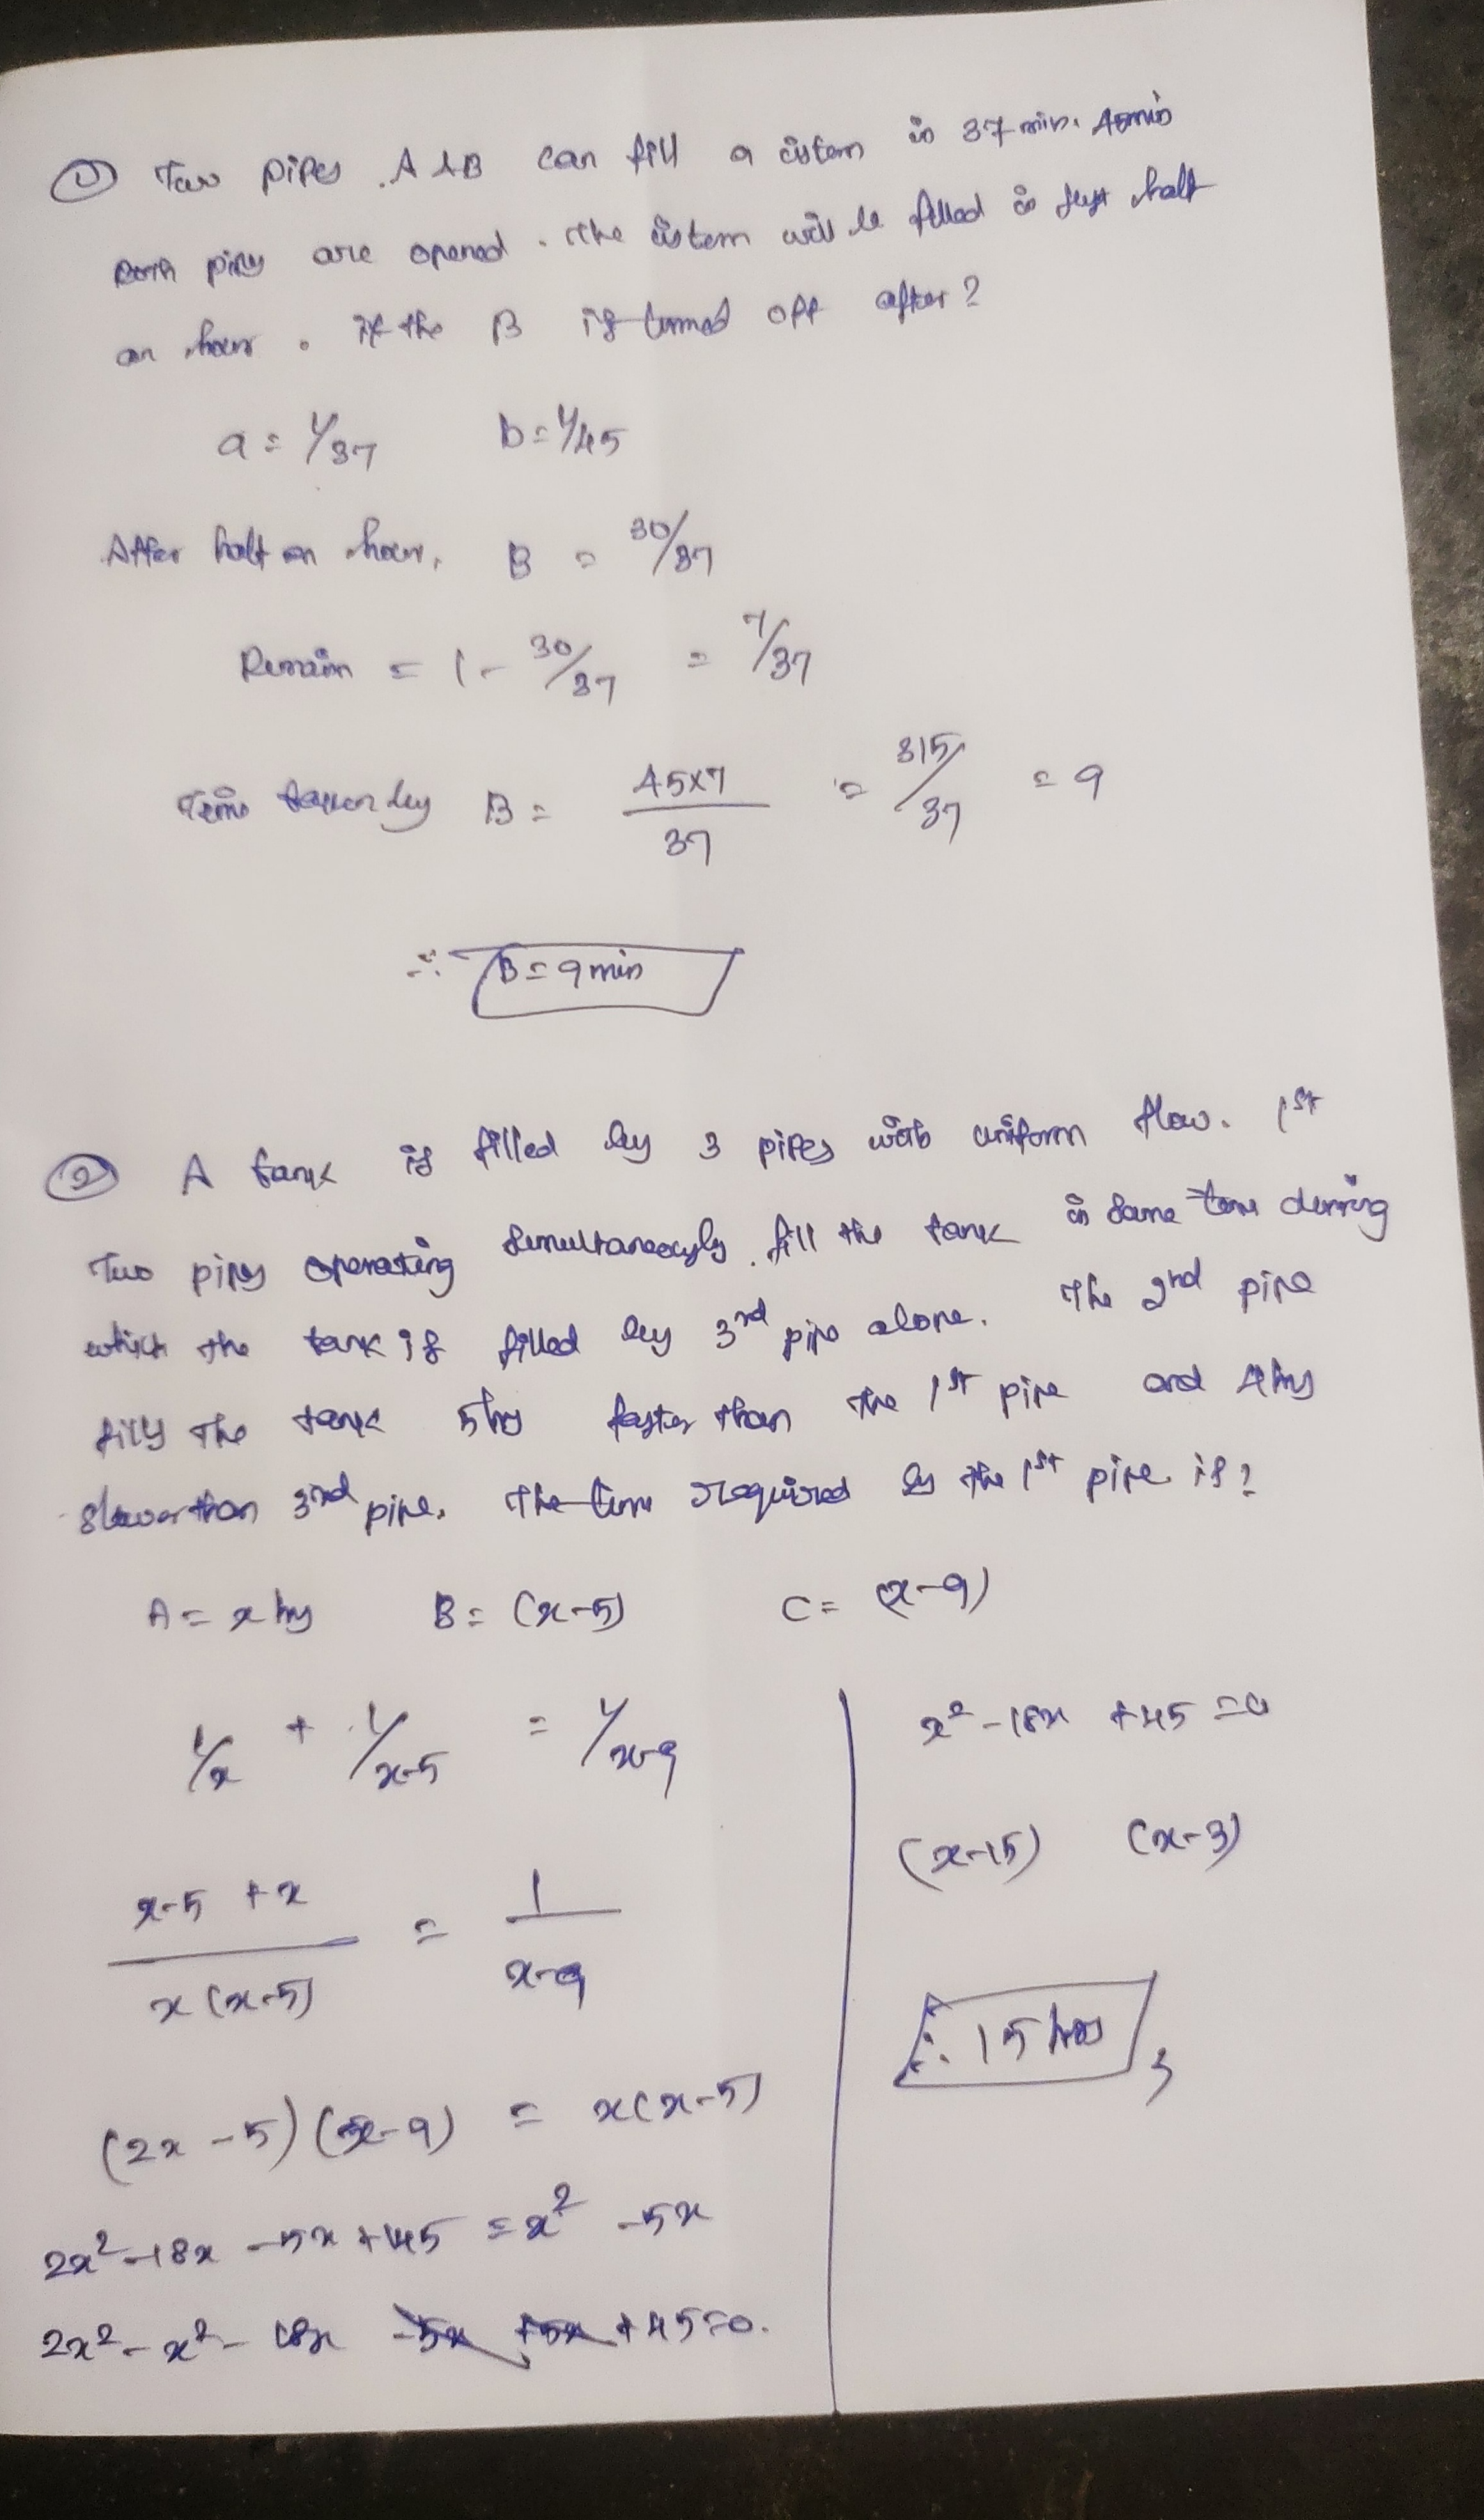 ① Two pipes A & B can fill a cistern in 37 min. 45min
Both pipes are opened. The cistern will be filled in just half
an hour. if the B is turned off after?
a = 1/37 b = 1/45
After half an hour, B = 30/37
Remain = 1 - 30/37 = 7/37
Time taken by B = 45x7/37 = 315/37 = 9
∴ B = 9 min
② A tank is filled by 3 pipes with uniform flow. 1st
Two pipes operating simultaneously fill the tank in same time during
which the tank is filled by 3rd pipe alone. The 2nd pipe
fills the tank 5hrs faster than the 1st pipe and 4hrs
slower than 3rd pipe. The time required by the 1st pipe is?
A = x hrs B = (x-5) C = (x-9)
1/x + 1/x-5 = 1/x-9
x-5 + x / x(x-5) = 1 / x-9
(2x - 5) (x-9) = x(x-5)
2x² - 18x - 5x + 45 = x² - 5x
2x² - x² - 18x - 5x + 5x + 45 = 0.
x² - 18x + 45 = 0
(x-15) (x-3)
∴ 15 hrs